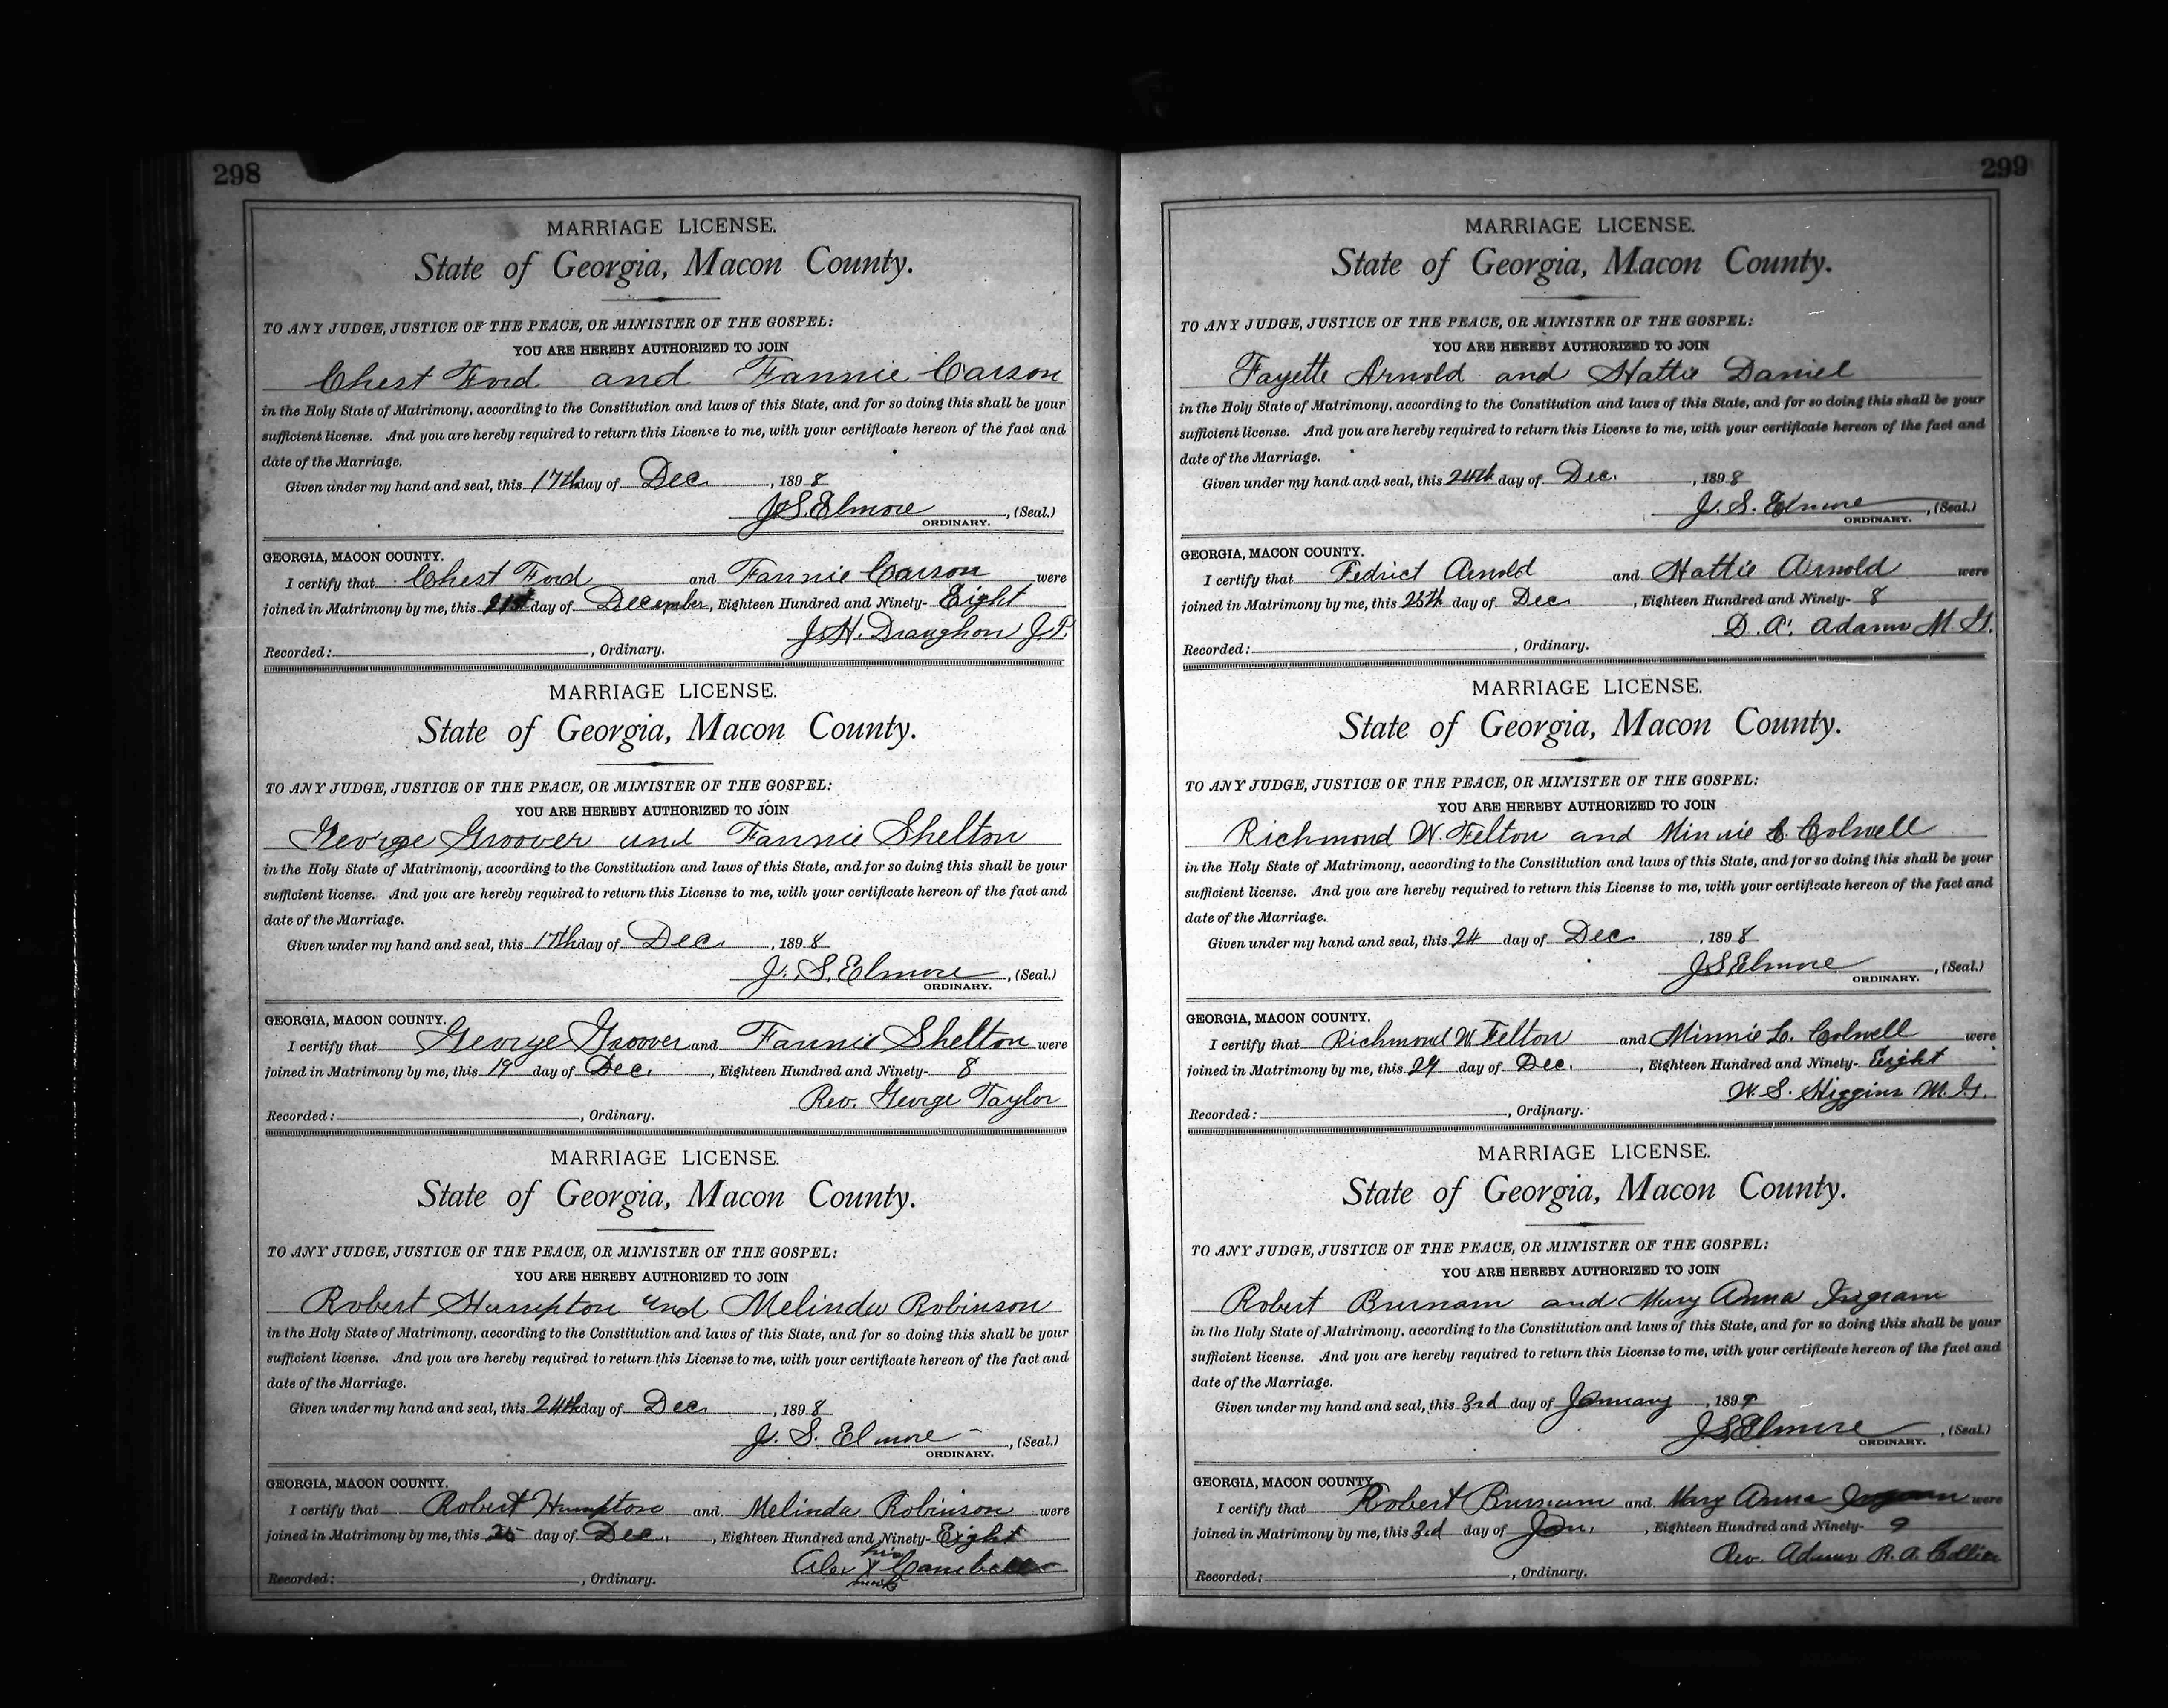 298
MARRIAGE LICENSE.
State of Georgia, Macon County.
TO ANY JUDGE, JUSTICE OF THE PEACE, OR MINISTER OF THE GOSPEL:
YOU ARE HEREBY AUTHORIZED TO JOIN
Chest Ford and Fannie Carson
in the Holy State of Matrimony, according to the Constitution and laws of this State, and for so doing this shall be your
sufficient license. And you are hereby required to return this License to me, with your certificate hereon of the fact and
date of the Marriage.
Given under my hand and seal, this 17th day of Dec. , 1898
J.S. Elmore , (Seal.)
ORDINARY.
GEORGIA, MACON COUNTY.
I certify that Chest Ford and Fannie Carson were
joined in Matrimony by me, this 21st day of December, Eighteen Hundred and Ninety- Eight
J.H. Draughon J.P.
Recorded: , Ordinary.
MARRIAGE LICENSE.
State of Georgia, Macon County.
TO ANY JUDGE, JUSTICE OF THE PEACE, OR MINISTER OF THE GOSPEL:
YOU ARE HEREBY AUTHORIZED TO JOIN
George Groover and Fannie Shelton
in the Holy State of Matrimony, according to the Constitution and laws of this State, and for so doing this shall be your
sufficient license. And you are hereby required to return this License to me, with your certificate hereon of the fact and
date of the Marriage.
Given under my hand and seal, this 17th day of Dec. , 1898
J. S. Elmore , (Seal.)
ORDINARY.
GEORGIA, MACON COUNTY.
I certify that George Groover and Fannie Shelton were
joined in Matrimony by me, this 19 day of Dec. , Eighteen Hundred and Ninety- 8
Rev. George Taylor
Recorded: , Ordinary.
MARRIAGE LICENSE.
State of Georgia, Macon County.
TO ANY JUDGE, JUSTICE OF THE PEACE, OR MINISTER OF THE GOSPEL:
YOU ARE HEREBY AUTHORIZED TO JOIN
Robert Humpton and Melinda Robinson
in the Holy State of Matrimony, according to the Constitution and laws of this State, and for so doing this shall be your
sufficient license. And you are hereby required to return this License to me, with your certificate hereon of the fact and
date of the Marriage.
Given under my hand and seal, this 24th day of Dec. , 1898
J. S. Elmore , (Seal.)
ORDINARY.
GEORGIA, MACON COUNTY.
I certify that Robert Humpton and Melinda Robinson were
joined in Matrimony by me, this 25 day of Dec. , Eighteen Hundred and Ninety- Eight
his
Alex X Cambell
mark
Recorded: , Ordinary.
299
MARRIAGE LICENSE.
State of Georgia, Macon County.
TO ANY JUDGE, JUSTICE OF THE PEACE, OR MINISTER OF THE GOSPEL:
YOU ARE HEREBY AUTHORIZED TO JOIN
Fayette Arnold and Hattie Daniel
in the Holy State of Matrimony, according to the Constitution and laws of this State, and for so doing this shall be your
sufficient license. And you are hereby required to return this License to me, with your certificate hereon of the fact and
date of the Marriage.
Given under my hand and seal, this 24th day of Dec. , 1898
J. S. Elmore , (Seal.)
ORDINARY.
GEORGIA, MACON COUNTY.
I certify that Fedrict Arnold and Hattie Arnold were
joined in Matrimony by me, this 25th day of Dec. , Eighteen Hundred and Ninety- 8
D. A. Adams M. G.
Recorded: , Ordinary.
MARRIAGE LICENSE.
State of Georgia, Macon County.
TO ANY JUDGE, JUSTICE OF THE PEACE, OR MINISTER OF THE GOSPEL:
YOU ARE HEREBY AUTHORIZED TO JOIN
Richmond W. Felton and Minnie L. Colwell
in the Holy State of Matrimony, according to the Constitution and laws of this State, and for so doing this shall be your
sufficient license. And you are hereby required to return this License to me, with your certificate hereon of the fact and
date of the Marriage.
Given under my hand and seal, this 24 day of Dec. , 1898
J S Elmore , (Seal.)
ORDINARY.
GEORGIA, MACON COUNTY.
I certify that Richmond W. Felton and Minnie L. Colwell were
joined in Matrimony by me, this 29 day of Dec. , Eighteen Hundred and Ninety- Eight
W. S. Higgins M. G.
Recorded: , Ordinary.
MARRIAGE LICENSE.
State of Georgia, Macon County.
TO ANY JUDGE, JUSTICE OF THE PEACE, OR MINISTER OF THE GOSPEL:
YOU ARE HEREBY AUTHORIZED TO JOIN
Robert Burnam and Mary Anna Ingram
in the Holy State of Matrimony, according to the Constitution and laws of this State, and for so doing this shall be your
sufficient license. And you are hereby required to return this License to me, with your certificate hereon of the fact and
date of the Marriage.
Given under my hand and seal, this 3rd day of January , 1899
J S Elmore , (Seal.)
ORDINARY.
GEORGIA, MACON COUNTY.
I certify that Robert Burnam and Mary Anna Ingram were
joined in Matrimony by me, this 3rd day of Jan. , Eighteen Hundred and Ninety- 9
Rev. Adam R. A. Collier
Recorded: , Ordinary.